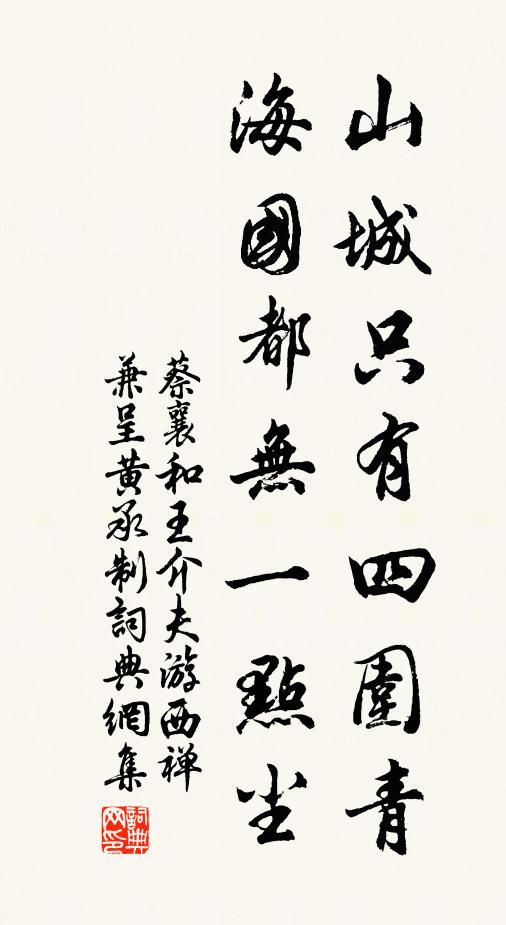 山城只有四圍青
海國都無一點尘
蔡襄和王介夫游西禅
兼呈黄承制詞典網集
詞典网印